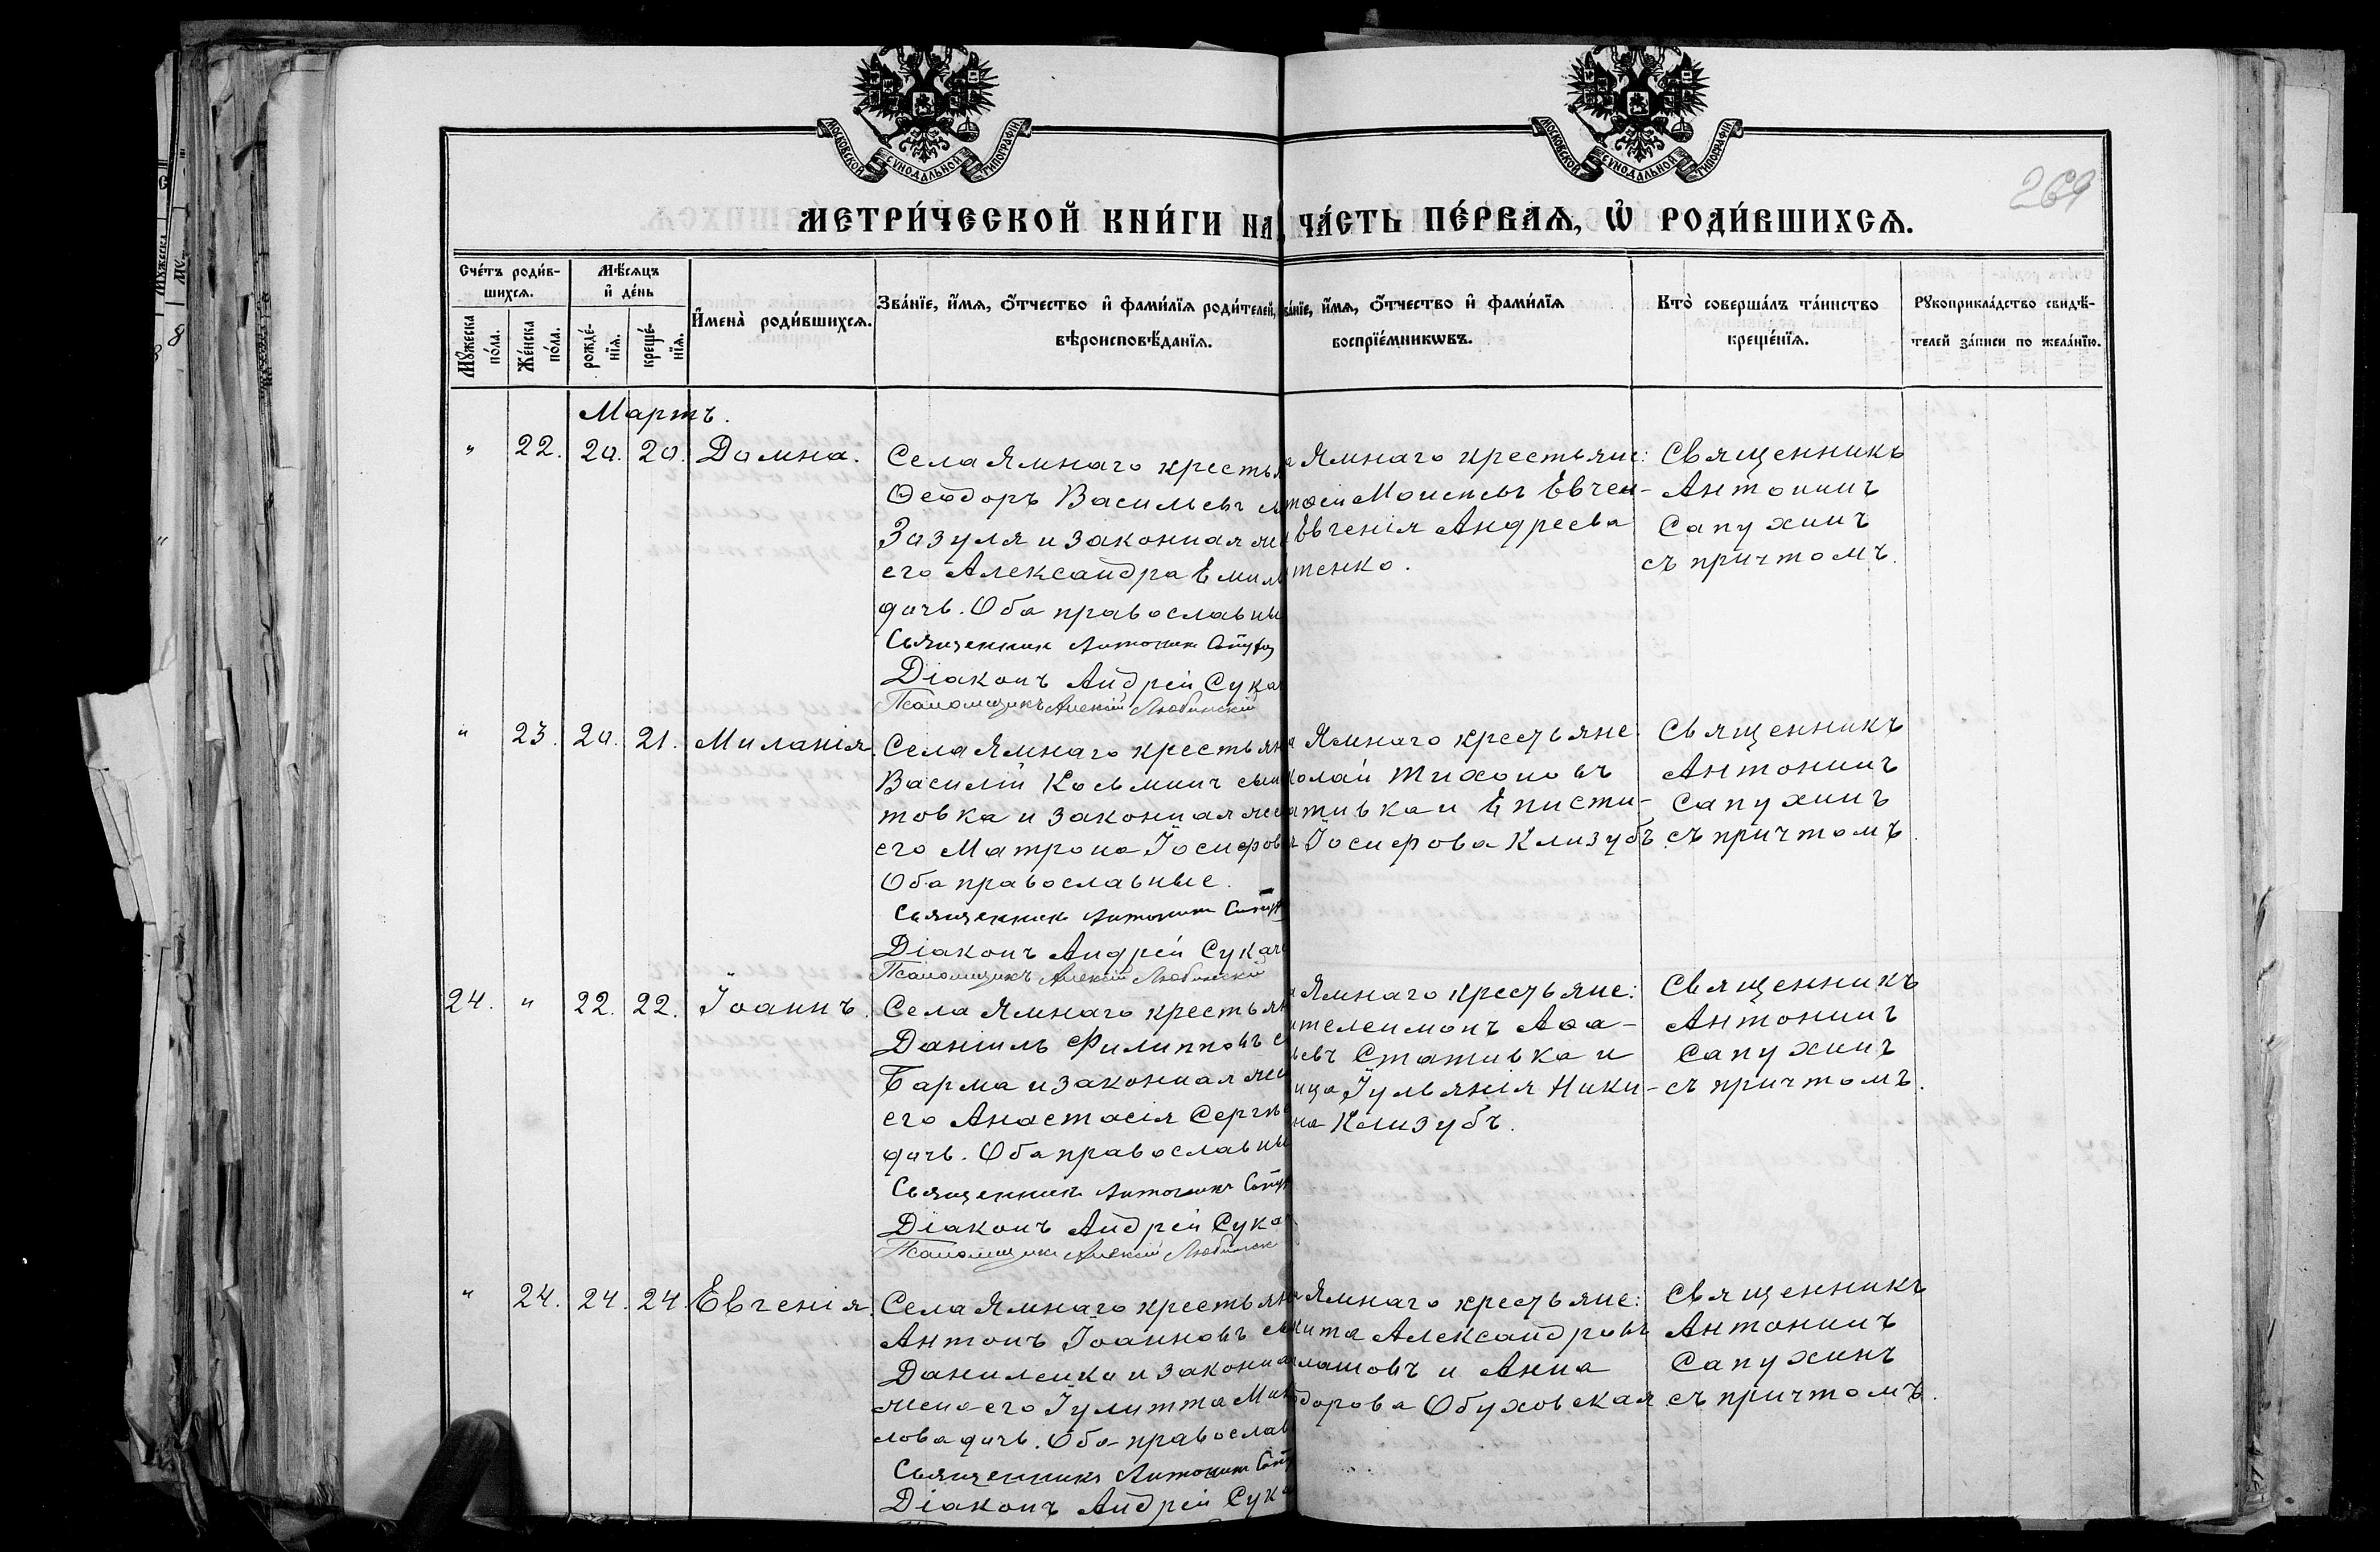 МОСКОВСКОЙ СУНОДАЛЬНОЙ ТИПОГРАФІИ
МОСКОВСКОЙ СУНОДАЛЬНОЙ ТИПОГРАФІИ
269
МЕТРИ́ЧЕСКОЙ КНИ́ГИ НА
ЧА́СТЬ ПЕ́РВАѦ, Ѡ҆ РОДИ́ВШИХСѦ.
Сче́тъ роди́в-
шихсѧ.
Мꙋ́жеска по́ла.
Же́нска по́ла.
Мѣ́сѧцъ
и҆ де́нь
рожде́-
нїѧ.
креще́-
нїѧ.
И҆мена̀ роди́вшихсѧ.
Зва́нїе, и҆́мѧ, ѻ҆́тчество и҆ фами́лїѧ роди́телей,
вѣроисповѣ́данїѧ.
ва́нїе, и҆́мѧ, ѻ҆́тчество и҆ фами́лїѧ
воспрїе́мникѡвъ.
Кто̀ соверша́лъ та́инство
креще́нїѧ.
Рꙋкоприкла́дство свидѣ́-
телей за́писи по жела́нїю.
Мартъ.
" 22. 20. 20. Домна.
Села Ямнаго крестья
Ѳеодоръ Васильевъ
Зазуля и законная же
его Александра Емил
дочь. Оба православны
Священникъ Антонинъ Сапух
Діаконъ Андрей Сука
Псаломщикъ Алексій Любинскій
Ямнаго крестьяне:
Моисеевъ Евчен-
Евгенія Андреева
тенко.
Священникъ
Антонинъ
Сапухинъ
съ причтомъ.
" 23. 20. 21. Миланія
Села Ямнаго крестьян
Василій Косьминъ сын
товка и законная же
его Матрона Іосифов
Оба православные.
Священникъ Антонинъ Сапух
Діаконъ Андрей Сукаче
Псаломщикъ Алексій Любинскій
Ямнаго крестьяне:
колай Тихоновъ
ативка и Еписти-
Іосифова Клизубъ
Священникъ
Антонинъ
Сапухинъ
съ причтомъ.
24. " 22. 22. Іоаннъ.
Села Ямнаго крестьян
Даніилъ Филипповъ с
Барма и законная же
его Анастасія Сергѣе
дочь. Оба православны
Священникъ Антонинъ Сапух
Діаконъ Андрей Сука
Псаломщикъ Алексій Любинск
Ямнаго крестьяне:
нтелеимонъ Аѳа-
ьевъ Стативка и
ица Іульянія Ники-
на Клизубъ.
Священникъ
Антонинъ
Сапухинъ
съ причтомъ.
" 24. 24. 24. Евгенія.
Села Ямнаго крестьян
Антонъ Іоанновъ
Даниленко и законна
жена его Іулитта Ми
лова дочь. Оба православ
Священникъ Антонинъ Сап
Діаконъ Андрей Сук
Ямнаго крестьяне:
кита Александровъ
лашовъ и Анна
одорова Обуховская
Священникъ
Антонинъ
Сапухинъ
съ причтомъ.